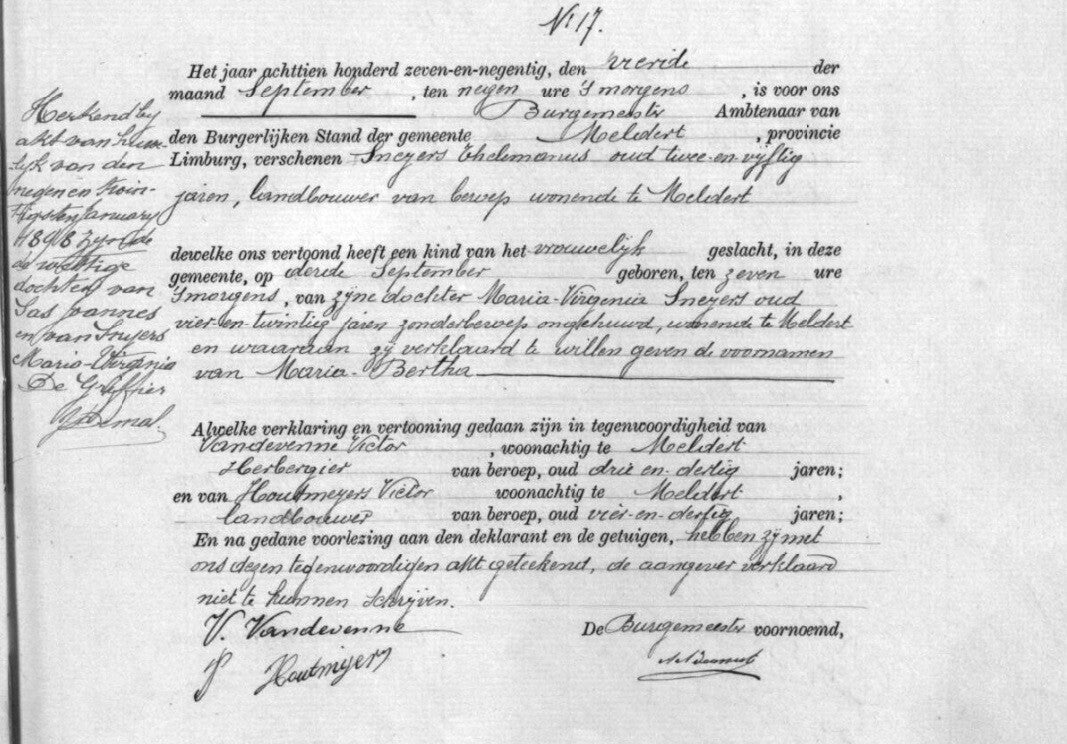 N<sup>r</sup> 17.
Het jaar achttien honderd zeven-en-negentig, den vierde der
maand September, ten negen ure 's morgens, is voor ons
Burgemeester Ambtenaar van
den Burgerlijken Stand der gemeente Meldert, provincie
Limburg, verschenen Sneyers Thelemanus oud twee-en-vyftig
jaren, landbouwer van beroep wonende te Meldert
dewelke ons vertoond heeft een kind van het vrouwelyk geslacht, in deze
gemeente, op derde September geboren, ten zeven ure
's morgens, van zyne dochter Maria-Virginia Sneyers oud
vier-en-twintig jaren zonder beroep ongehuwd, wonende te Meldert
en waaraan zy verklaard te willen geven de voornamen
van Maria-Bertha
Alwelke verklaring en vertooning gedaan zijn in tegenwoordigheid van
Vandevenne Victor, woonachtig te Meldert
Herbergier van beroep, oud drie en dertig jaren;
en van Houtmeyers Victor woonachtig te Meldert,
landbouwer van beroep, oud vier-en-dertig jaren;
En na gedane voorlezing aan den deklarant en de getuigen, hebben zy met
ons dezen tegenwoordigen akt geteekend, de aangever verklaard
niet te kunnen schryven.
V. Vandevenne
De Burgemeester voornoemd,
Houtmeyers
Herkend by
akt van huw-
lyk van den
negen en twin-
tigsten January
1898 zynde
de wettige
dochter van
Sas Joannes
en van Snyers
Maria-Virginia
De Griffier